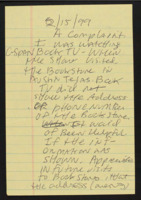 2/15/99
A Complaint
I was watching
CSPAN Book TV - when
the show visited
the Bookstore in
Austin Texas Book
TV did not
show the address
or phone number
of the Book Store.
It would
of been helpful
if the inf-
ormation was
shown. Appreciate
in future visits
to Book Stores that
the address